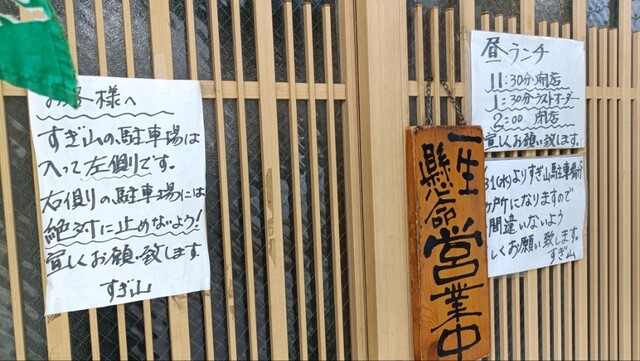 お客様へ
すぎ山の駐車場は
入って左側です。
右側の駐車場には
絶対に止めないよう!
宜しくお願い致します
すぎ山
一生
懸命
営業中
昼ランチ
11:30分 開店
1:30分ラストオーダー
2:00 閉店
宜しくお願い致します。
31(水)よりすぎ山駐車場が
ヶ所になりますので
間違いないよう
しくお願い致します。
すぎ山